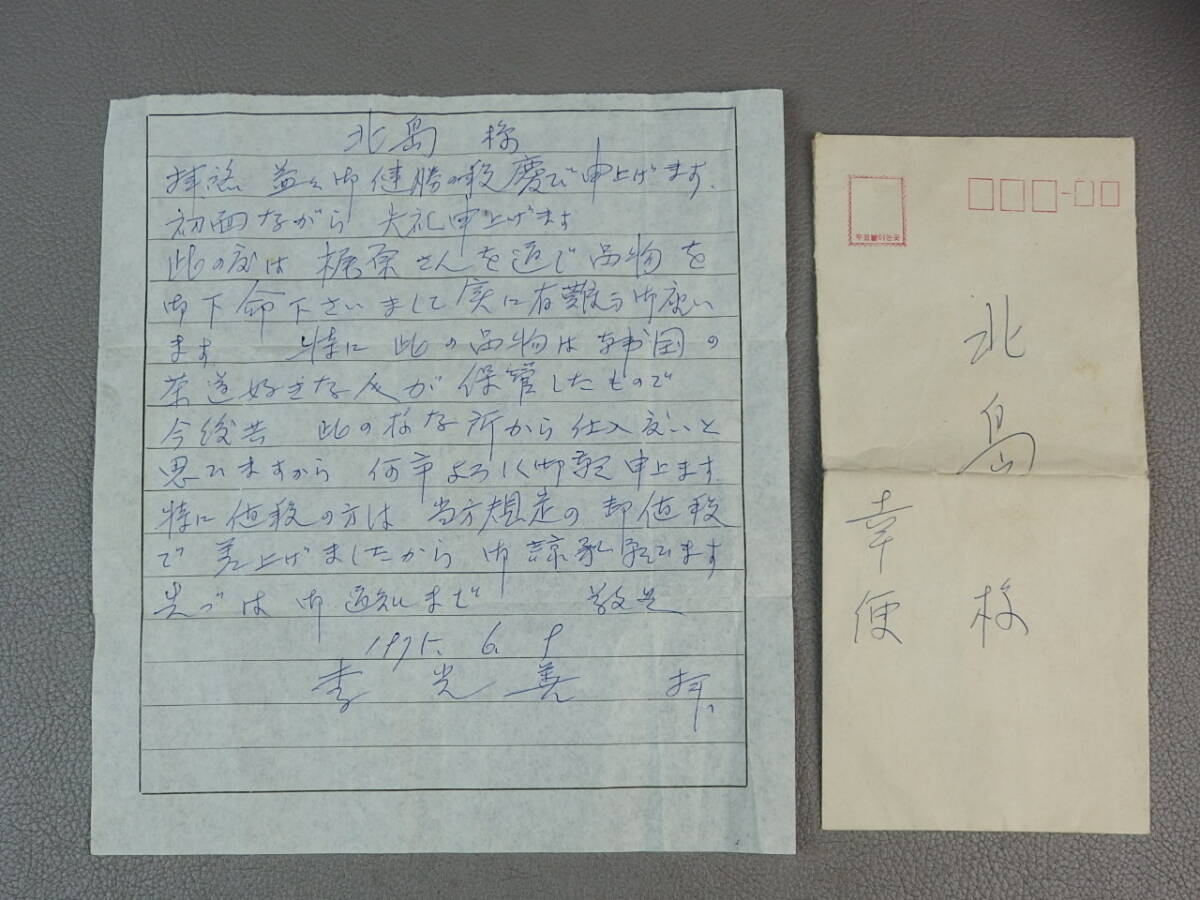 北島 様
拝啓 益々御健勝の段慶び申上げます.
初面ながら 失礼申上げます
此の度は 梶原さんを通で品物を
御下命下さいまして実に有難う御座い
ます 特に此の品物は韓国の
茶道好きな人が保管したもので
今後共 此の様な所から仕入度いと
思ひますから 何卒よろしく御願申上ます.
特に値段の方は 当方規定の卸値段
で差上げましたから 御諒承願ひます
先づは御通知まで 敬具
1975. 6. 9
李 光 善 拝
우표붙이는곳
北島 様
幸便